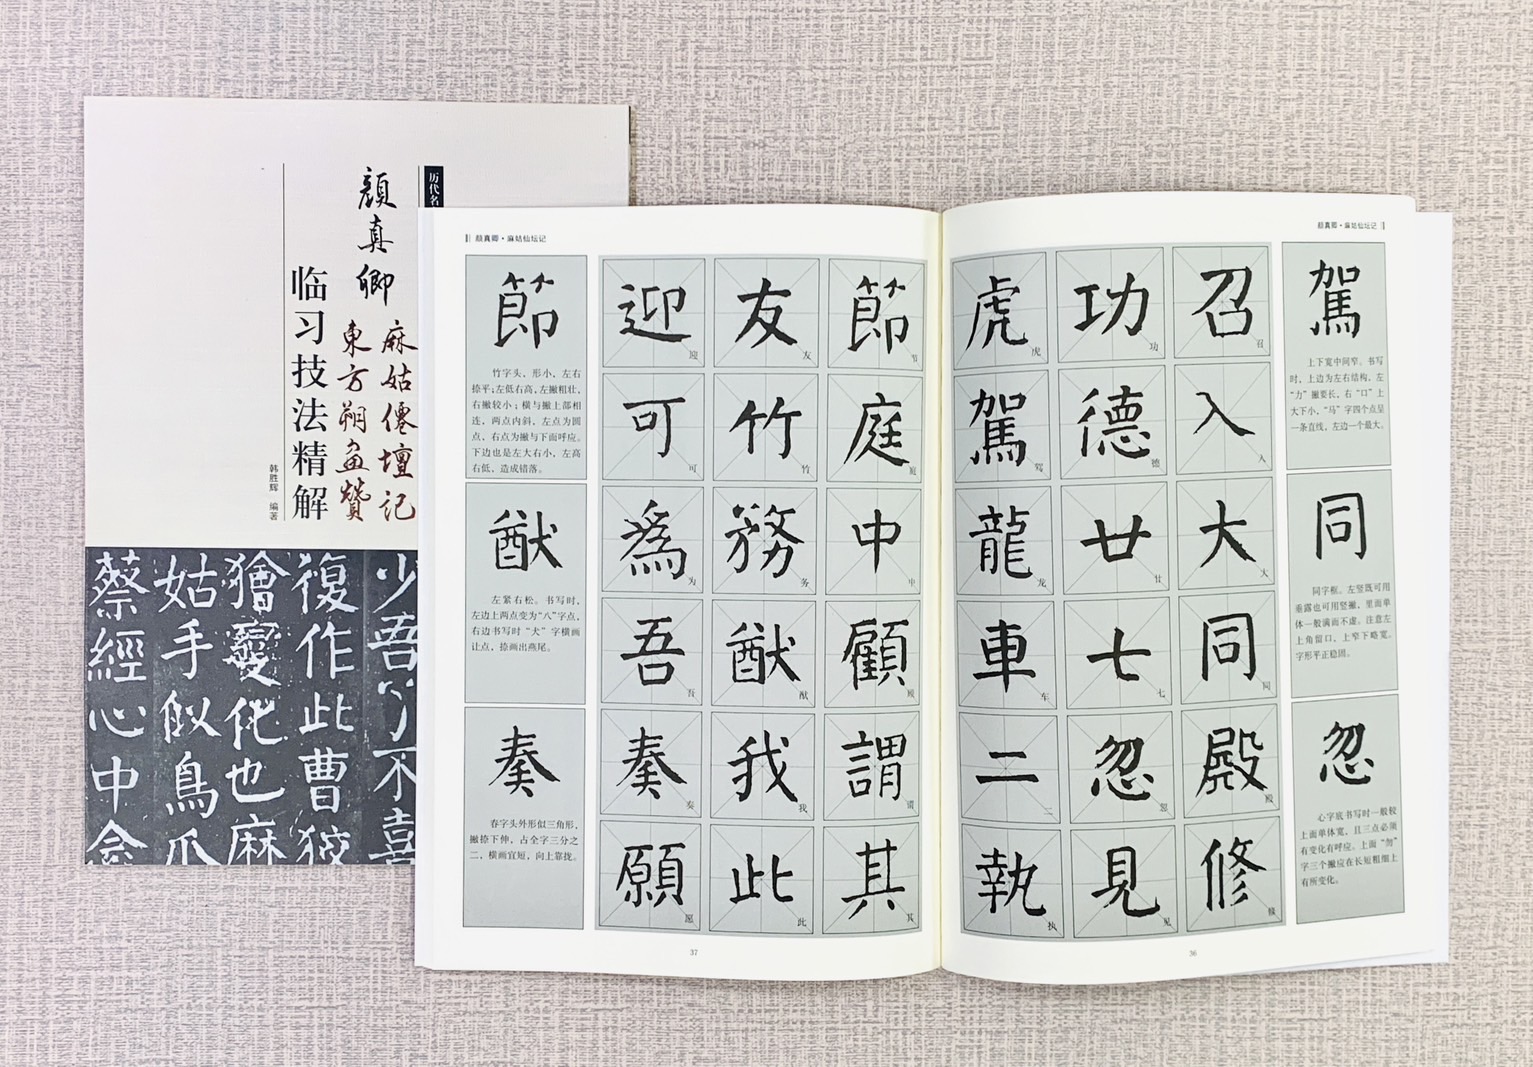 历代名
顔真卿
麻姑僊壇記
東方朔畫贊
临习技法精解
韩胜辉 编著
少吾
不喜
復作此曹狡
獪變化也麻
姑手似鳥爪
蔡經心中念
颜真卿·麻姑仙坛记
駕
上下宽中间窄。书写
时，上边为左右结构，左
“力”撇要长，右“口”上
大下小，“马”字四个点呈
一条直线，左边一个最大。
同
同字框。左竖既可用
垂露也可用竖撇，里面单
体一般满而不虚。注意左
上角留口，上窄下略宽。
字形平正稳固。
忽
心字底书写时一般较
上面单体宽，且三点必须
有变化有呼应。上面“勿”
字三个撇应在长短粗细上
有所变化。
召入大同殿修
召
入
大
同
殿
修
功德廿七忽見
功
德
廿
七
忽
见
虎駕龍車二執
虎
驾
龙
车
二
执
36
颜真卿·麻姑仙坛记
節庭中顧謂其
节
庭
中
顾
谓
其
友竹務猷我此
友
竹
务
猷
我
此
迎可為吾奏願
迎
可
为
吾
奏
愿
節
竹字头，形小，左右
捺平；左低右高，左撇粗壮，
右撇较小；横与撇上部相
连，两点内斜，左点为圆
点，右点为撇与下面呼应。
下边也是左大右小，左高
右低，造成错落。
猷
左紧右松。书写时，
左边上两点变为“八”字点，
右边书写时“犬”字横画
让点，捺画出燕尾。
奏
春字头外形似三角形，
撇捺下伸，占全字三分之
二，横画宜短，向上靠拢。
37